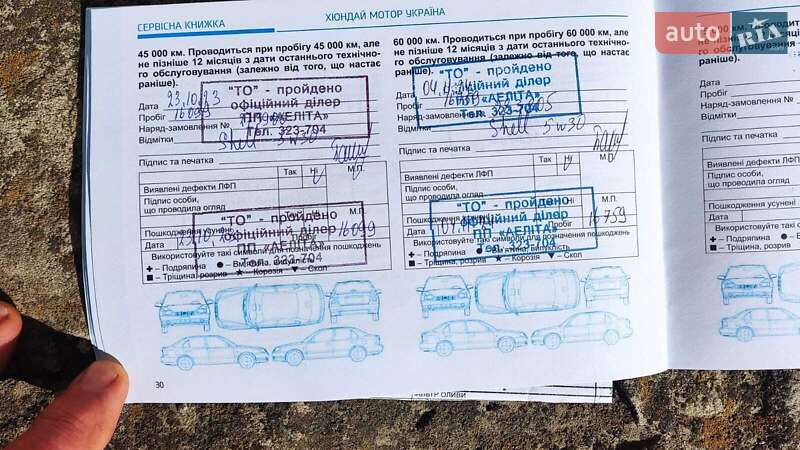 СЕРВІСНА КНИЖКА
ХЮНДАЙ МОТОР УКРАЇНА
auto RIA
45 000 км. Проводиться при пробігу 45 000 км, але
не пізніше 12 місяців з дати останнього технічно-
го обслуговування (залежно від того, що настає
раніше).
"ТО" - пройдено
офіційний ділер
ПП «АЕЛІТА»
Тел. 323-704
Дата 23.10.23
Пробіг 16099
Наряд-замовлення №
Відмітки Shell 5w30
Підпис та печатка
Так Ні М.П.
Виявлені дефекти ЛФП
Підпис особи,
що проводила огляд
Так Ні
Пошкодження усунено
Дата Пробіг 16099
"ТО" - пройдено
офіційний ділер
ПП «АЕЛІТА»
Тел. 323-704
Використовуйте такі символи для позначення пошкоджень
Подряпина Вм'ятина, випуклість
Тріщина, розрив Корозія Скол
30
60 000 км. Проводиться при пробігу 60 000 км, але
не пізніше 12 місяців з дати останнього технічно-
го обслуговування (залежно від того, що настає
раніше).
"ТО" - пройдено
офіційний ділер
ПП «АЕЛІТА»
Тел. 323-704
Дата
Пробіг
Наряд-замовлення
Відмітки Shell 5w30
Підпис та печатка
Так Ні М.П.
Виявлені дефекти ЛФП
Підпис особи,
що проводила огляд
Пошкодження
Дата Пробіг 16759
"ТО" - пройдено
офіційний ділер
ПП «АЕЛІТА»
Тел. 323-704
Використовуйте такі символи для позначення пошкоджень
Подряпина Вм'ятина, випуклість
Тріщина, розрив Корозія Скол
не пізніше 12 місяців
го обслуговування
раніше).
Дата
Пробіг
Наряд-замовлення
Відмітки
Підпис та печатка
Виявлені дефекти ЛФП
Підпис особи,
що проводила огляд
Пошкодження усунено
Дата
Використовуйте такі
Подряпина
Тріщина, розрив
ФІЛЬТР ОЛИВИ